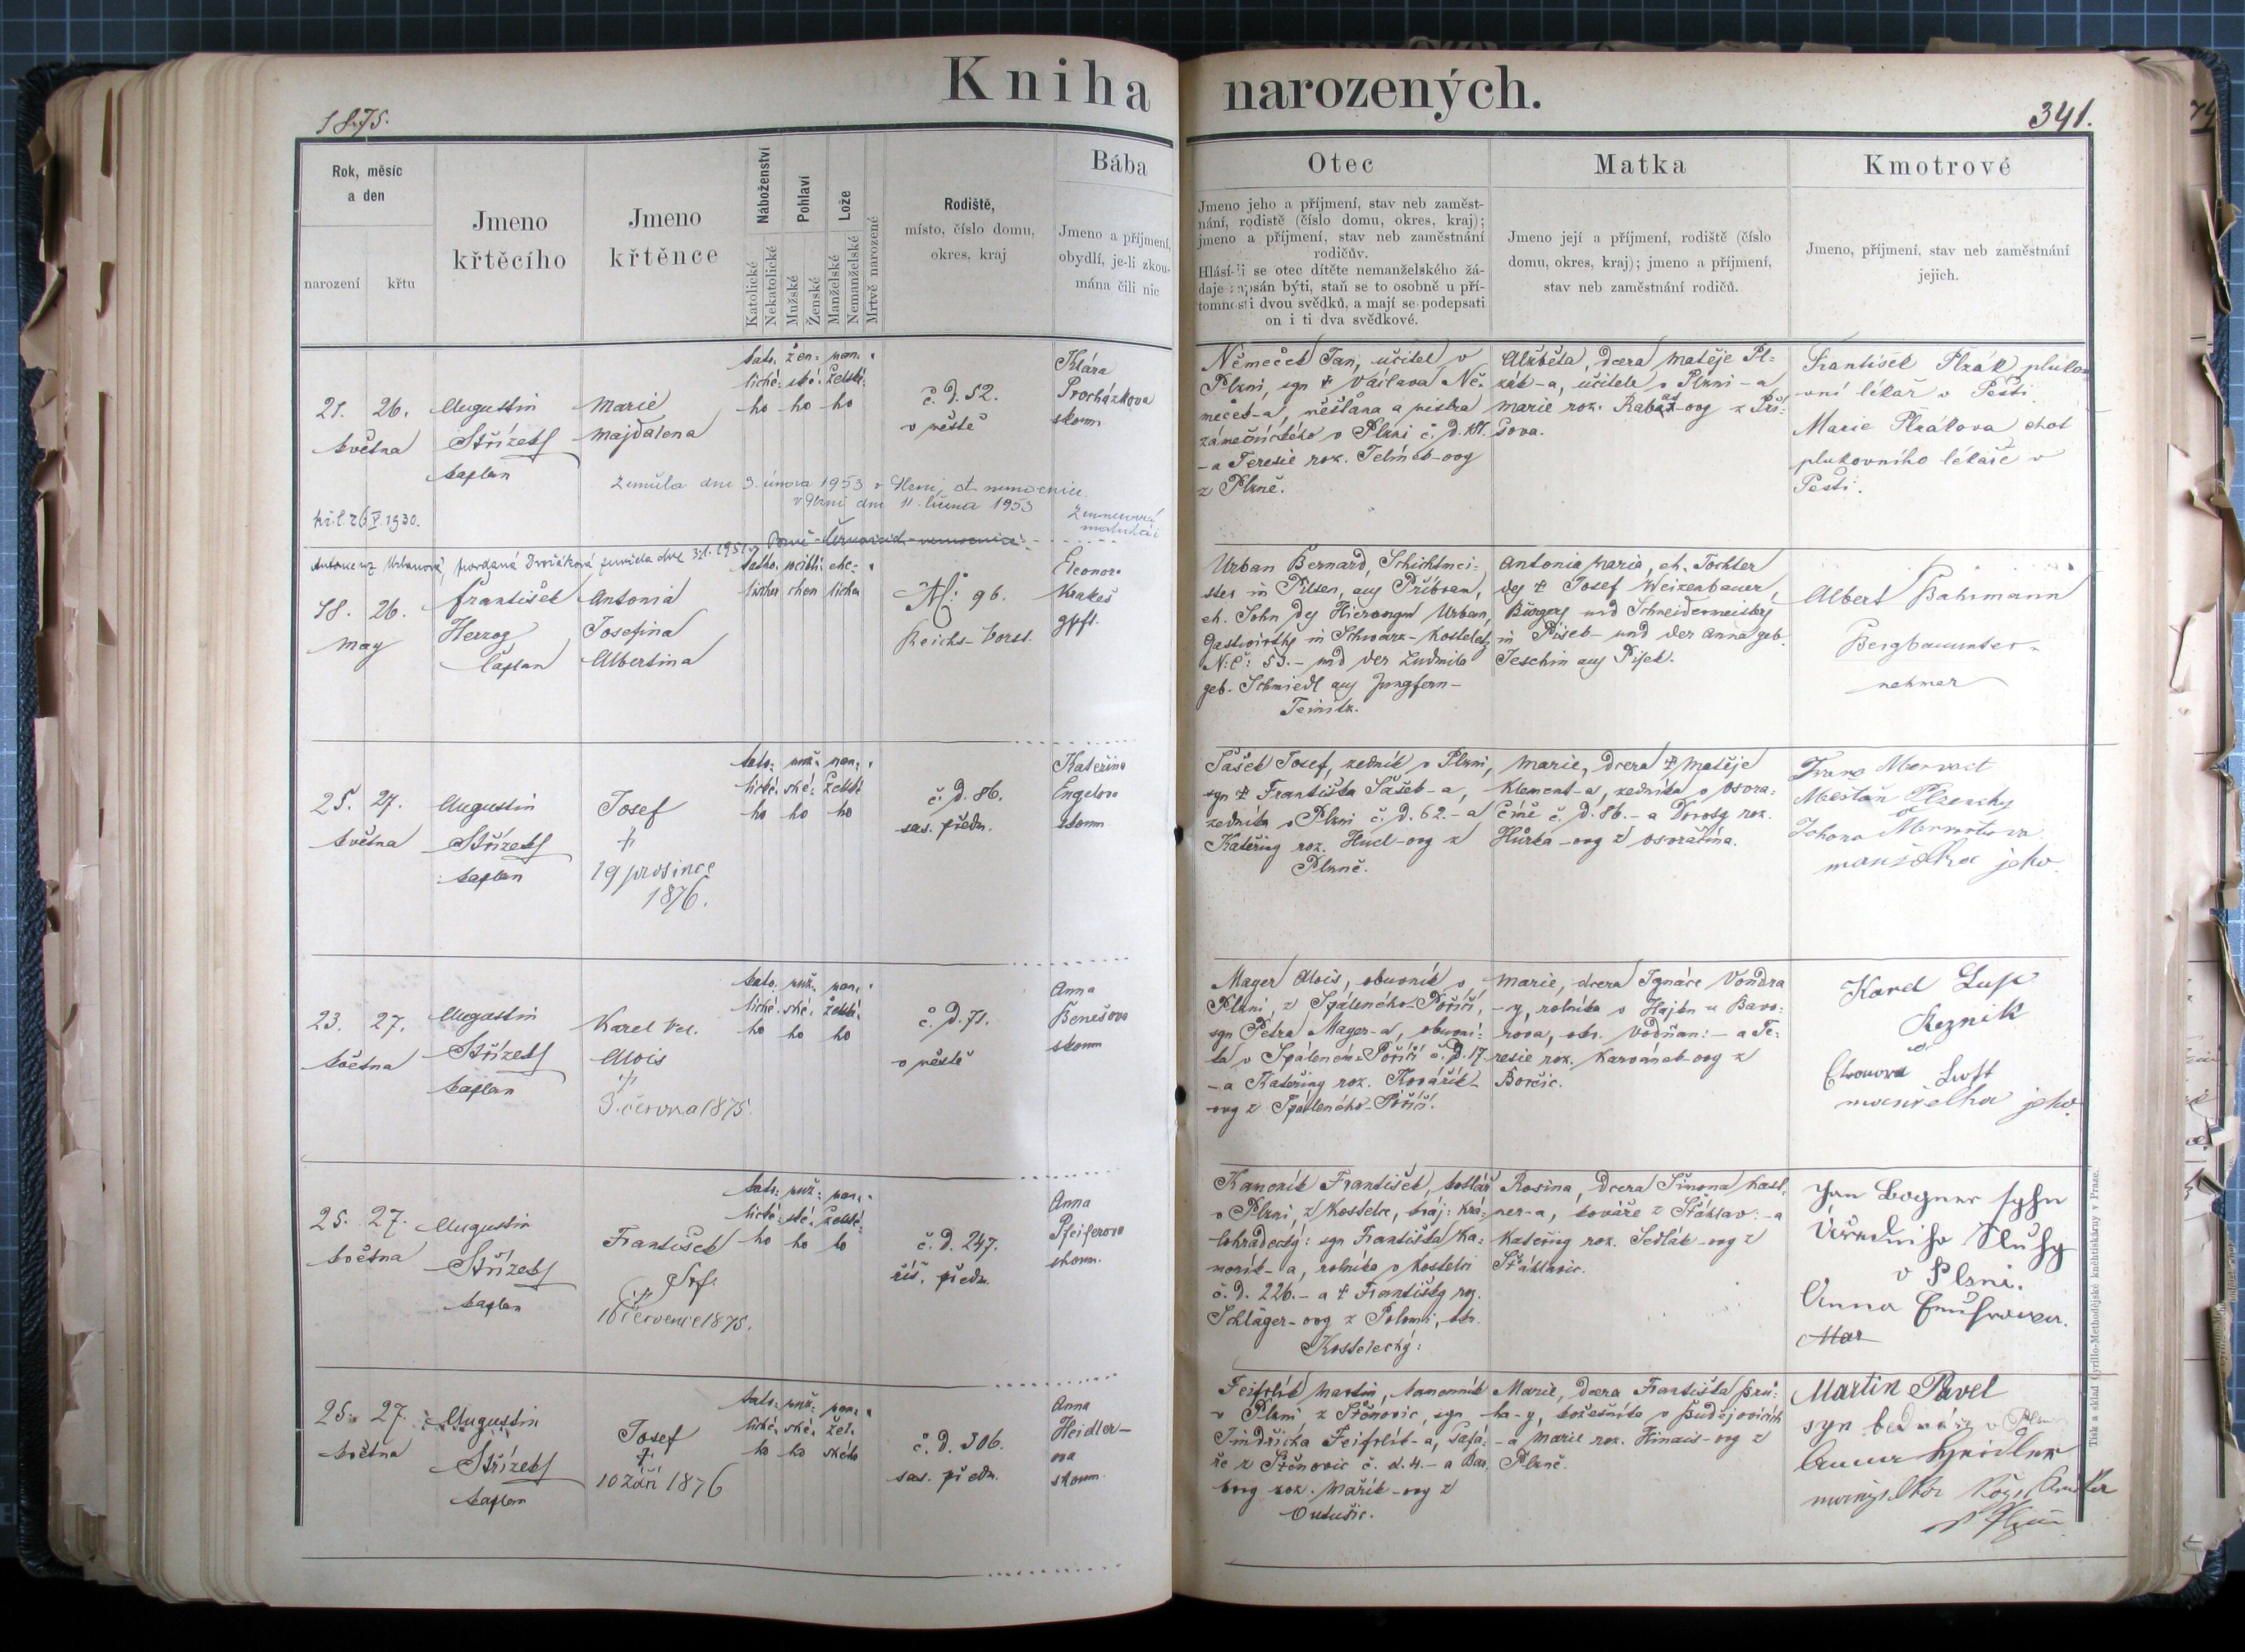 Kniha narozených.
1875.
341.
Rok, měsíc
a den
narození
křtu
Jmeno
křtěcího
Jmeno
křtěnce
Náboženství
Katolické
Nekatolické
Pohlaví
Mužské
Ženské
Lože
Manželské
Nemanželské
Mrtvě narozené
Rodiště,
místo, číslo domu,
okres, kraj
Bába
Jmeno a příjmení,
obydlí, je-li zkou-
mána čili nic
Otec
Jmeno jeho a příjmení, stav neb zaměst-
nání, rodistě (číslo domu, okres, kraj);
jmeno a příjmení, stav neb zaměstnání
rodičův.
Hlásí-li se otec dítěte nemanželského žá-
daje zapsán býti, staň se to osobně u pří-
tomnosti dvou svědků, a mají se podepsati
on i ti dva svědkové.
Matka
Jmeno její a příjmení, rodiště (číslo
domu, okres, kraj); jmeno a příjmení,
stav neb zaměstnání rodičů.
Kmotrové
Jmeno, příjmení, stav neb zaměstnání
jejich.
21. 26.
května
Augustin
Střízek
kaplan
Marie
Majdalena
kato: žen: man:
lické: ské: želské:
ho ho ho
č. d. 52.
v městě
Klára
Procházkova
zkoum.
Němeček Jan, učitel v
Plzni, syn † Václava Ně-
meček-a, měšťana a mistra
zámečnického v Plzni č. d.
-a Teresie roz.
z Plzně.
Alžběta, dcera Matěje Pl-
zák-a, učitele v Plzni -a
Marie roz.
František Plzák pluko
vní lékař v Pešti.
Marie Plzákova choť
plukovního lékaře v
Pešti.
Zemřela dne 3. února 1953 v Plzni, st. nemocnice.
v Plzni dne 11. února 1953
kř. l. 26 V. 1930.
Antonie Urbanová, provdaná Dvořáková zemřela dne
18. 26.
May
František
Herzog
Caplan
Antonia
Josefina
Albertina
katho: weibli: ehe-
lischer chen lichen
N: 96.
Reichs-Vorst.
Eleonora
Krakeš
gpft.
Urban Bernard, Schichtmei-
ster in Pilsen, aus Přibram,
eh. Sohn des Hieronymus Urban,
Gastwirths in Schwarz-Kosteletz
N:C: 53.- und der Ludmila
geb. Schmiedl aus Jungfern-
Teinitz.
Antonia Maria, eh. Tochter
des † Josef Weizenbauer,
Bürgers und Schneidermeisters
in Pisek- und der Anna geb.
Jeschin aus Pisek.
Albert Bahrmann
Bergbauunter-
nehmer
25. 27.
května
Augustin
Střízek
kaplan
Josef
†
19 prosince
1876.
kato: muž: man:
lické: ské: želské
ho ho ho
č. d. 86.
sas. předm.
Kateřina
Engelova
zkoum
Sašek Josef, zedník v Plzni,
syn † Františka Sašek-a,
zedníka v Plzni č. d. 62.- a
Kateřiny roz. Hucl-ovy z
Plzně.
Marie, dcera † Matěje
Klement-a, zedníka v Osvra-
číně č. d. 86.- a Doroty roz.
Hůrka-ovy z Osvračína.
Měšťan Plzenský
manželka jeho.
23. 27.
května
Augustin
Střízek
kaplan
Karel Vel.
Alois
†
9. června 1875.
kato: muž: man:
lické: ské: želské:
ho ho ho
č. d. 71.
v městě
Anna
Benešova
zkoum
Mayer Alois, obuvník v
Plzni, z Spáleného-Poříčí,
syn Petra Mayer-a, obuvní-
ka v Spáleném-Poříčí č. d. 17.
-a Kateřiny roz. Kovářík-
ovy z Spáleného-Poříčí.
Marie, dcera Ignáce Vondra
-y, rolníka v Hájku u Bavo-
rova, okr. Vodňan: -a Te-
resie roz. Karvánek-ovy z
Borčic.
Karel Luft
Řezník
Eleonora Luft
manželka jeho
25. 27.
května
Augustin
Střízek
kaplan
František
†
16 července 1875.
kato: muž: man:
lické: ské: želské:
ho ho ho
č. d. 247.
říš. předm.
Anna
Pfeiferova
zkoum.
Kameník František, kotlář
v Plzni, z Kostelce, kraj: Krá-
lohradecký: syn Františka Ka-
meník-a, rolníka v Kostelci
č. d. 226.- a † Františky roz.
Schläger-ovy z Polomi, okr.
Kostelecký:
Rosina, dcera Šimona Kast-
ner-a, kováře z Šťáhlav: -a
Kateřiny roz. Sedlák-ovy z
Šťáhlavic.
Jan Bogner syn
Úředního Sluhy
v Plzni.
Anna
Mar
25. 27.
května
Augustin
Střízek
kaplan
Josef
†
10 Září 1876
kato: muž: man:
lické: ské: žel:
ho ho ského
č. d. 306.
sas. předm.
Anna
Heidler-
ova
zkoum.
Feifrlík Martin, kameník
v Plzni, z Štěnovic, syn
Jindřicha Feifrlík-a, šafá-
ře z Štěnovic č. d. 4.- a Bar-
bory roz. Mařík-ovy z
Outušic.
Marie, dcera Františka Pru-
ha-y, košešníka v Budějovicích
-a Marie roz. Hinais-ovy z
Plzně.
Martin Pavel
syn bednáře v Plzni
Anna Heidler
Tisk a sklad Cyrillo-Methodějské knihtiskárny v Praze.